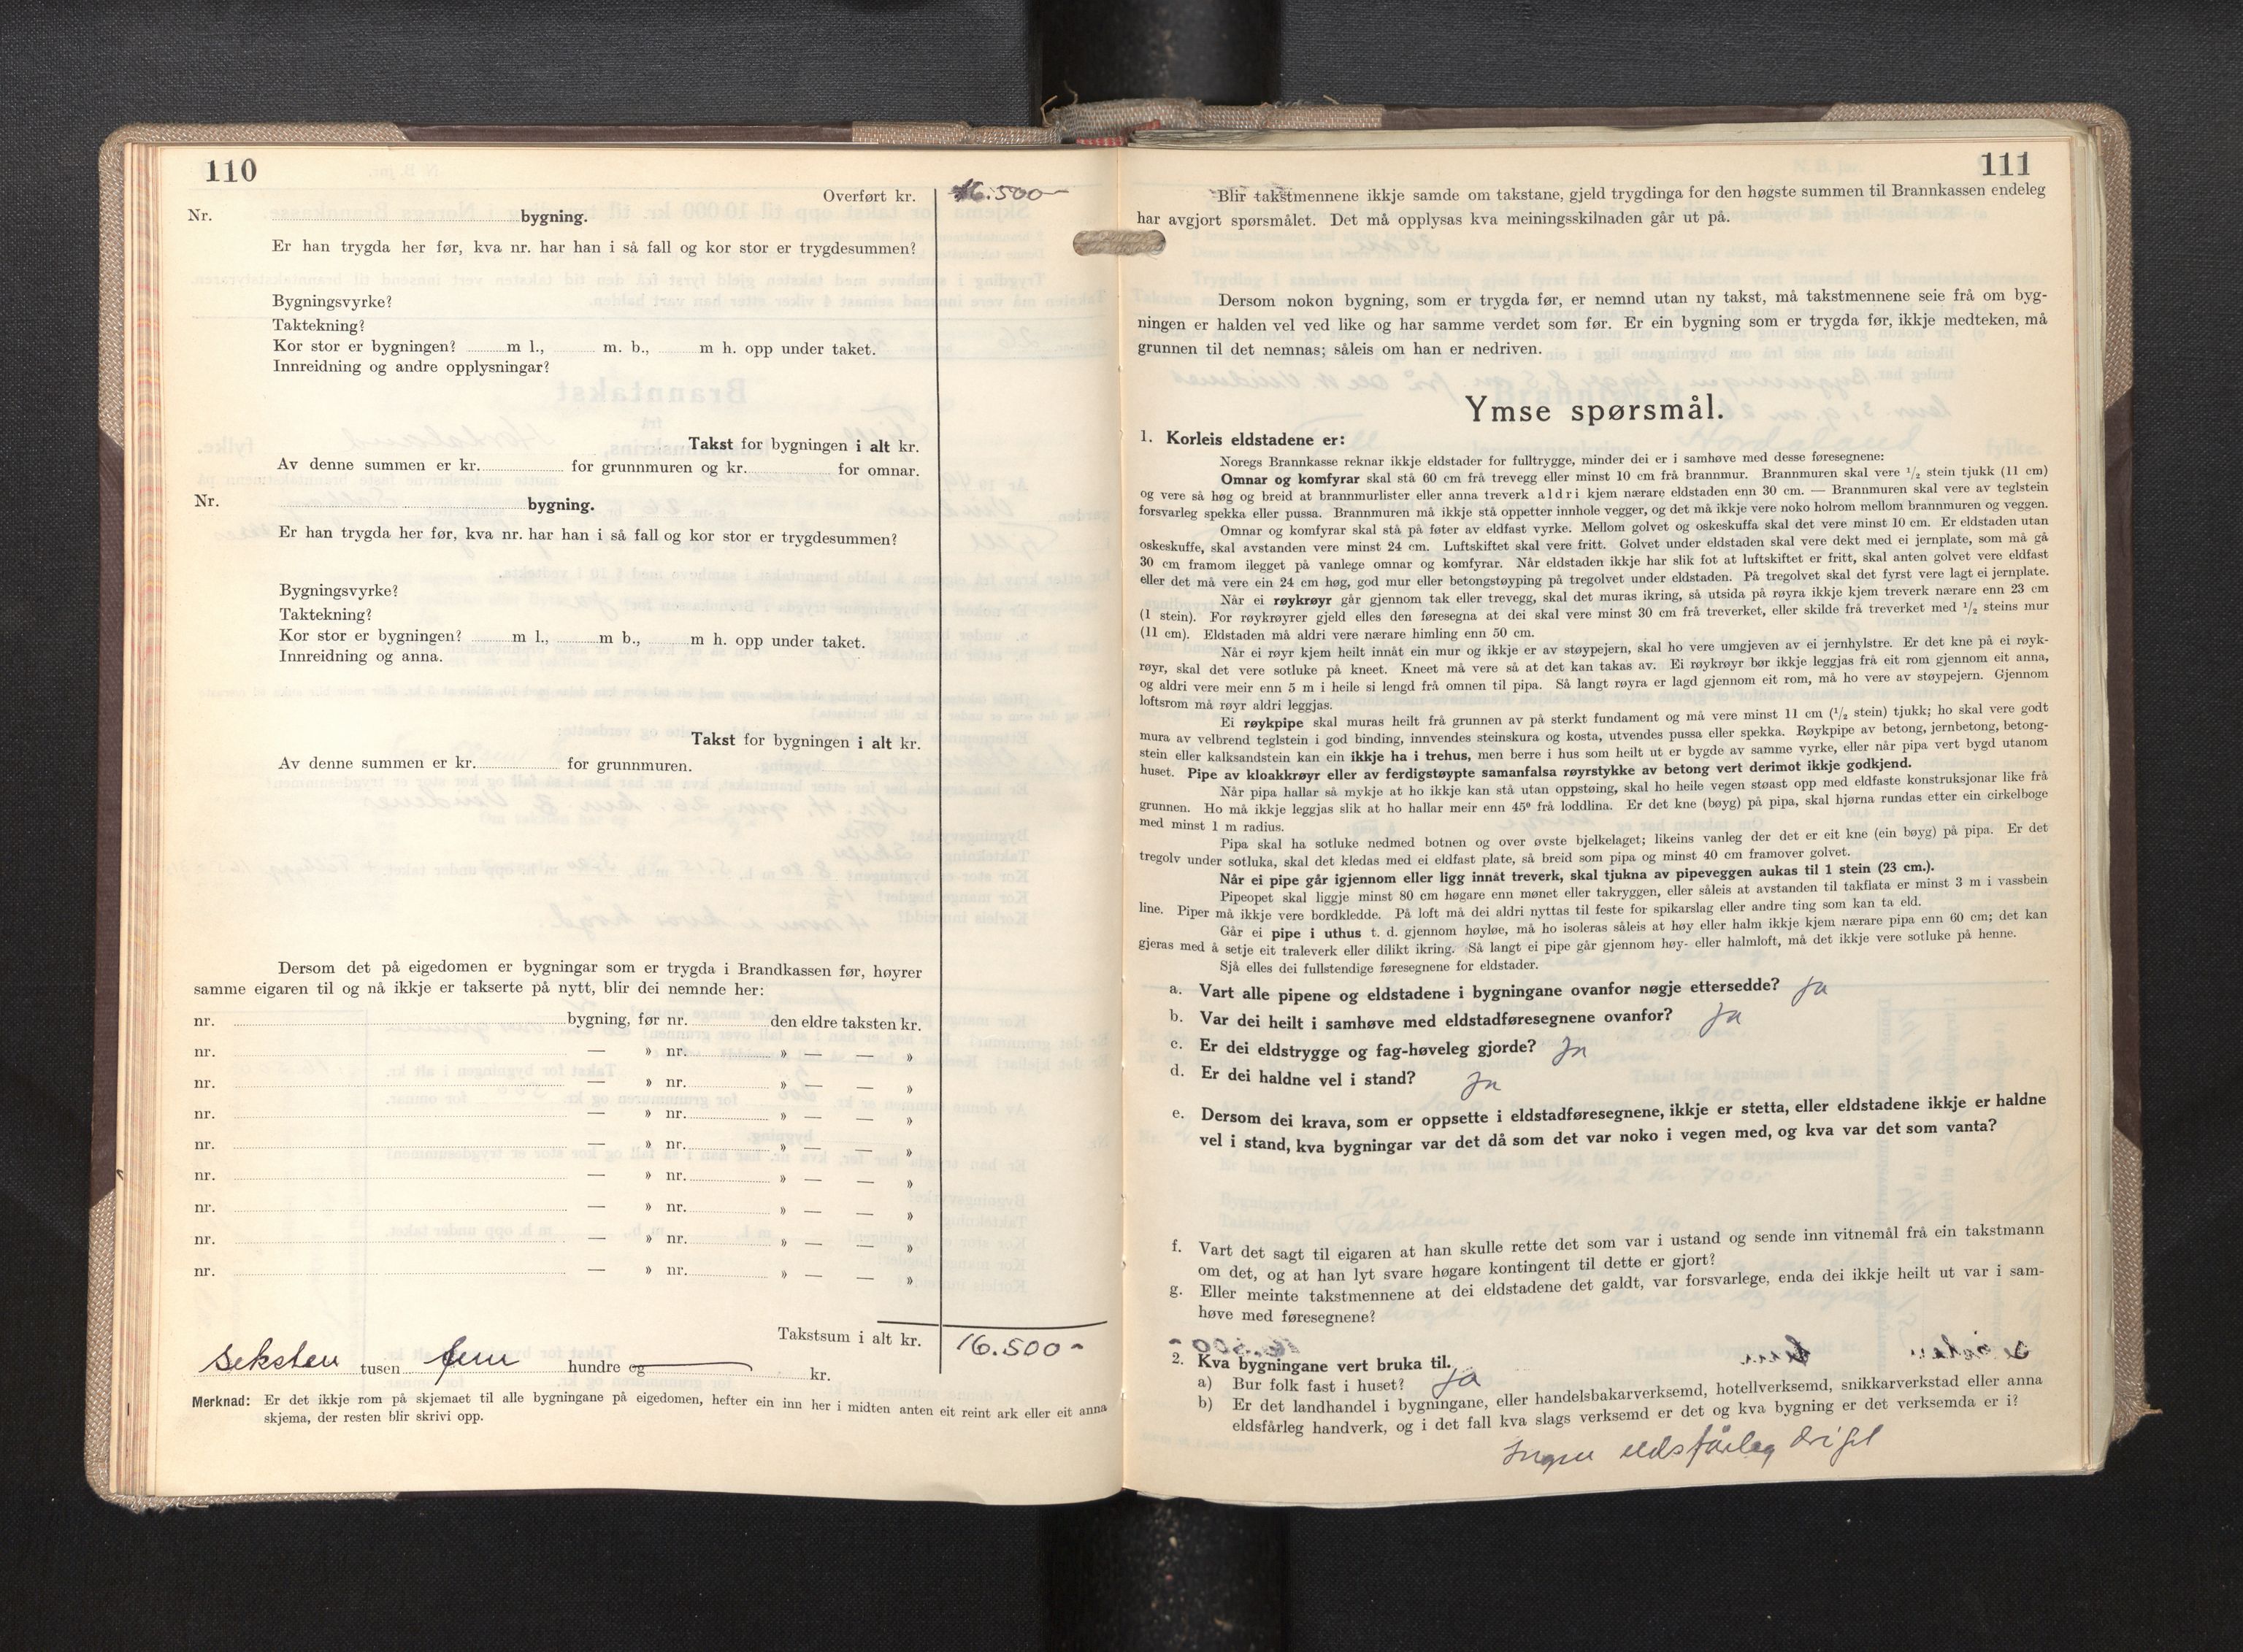 110
Overført kr. 16.500-
Nr. bygning.
Er han trygda her før, kva nr. har han i så fall og kor stor er trygdesummen?
Bygningsvyrke?
Taktekning?
Kor stor er bygningen? m l., m. b., m h. opp under taket.
Innreidning og andre opplysningar?
Takst for bygningen i alt kr.
Av denne summen er kr. for grunnmuren og kr. for omnar.
Nr. bygning.
Er han trygda her før, kva nr. har han i så fall og kor stor er trygdesummen?
Bygningsvyrke?
Taktekning?
Kor stor er bygningen? m l., m b., m h. opp under taket.
Innreidning og anna.
Takst for bygningen i alt kr.
Av denne summen er kr. for grunnmuren.
Dersom det på eigedomen er bygningar som er trygda i Brandkassen før, høyrer
samme eigaren til og nå ikkje er takserte på nytt, blir dei nemnde her:
nr. bygning, før nr. den eldre taksten kr.
nr. — » nr. » — — »
nr. — » nr. » — — »
nr. — » nr. » — — »
nr. — » nr. » — — »
nr. — » nr. » — — »
nr. — » nr. » — — »
nr. — » nr. » — — »
nr. — » nr. » — — »
Takstsum i alt kr. 16.500-
seksten tusen fem hundre og kr.
Merknad: Er det ikkje rom på skjemaet til alle bygningane på eigedomen, hefter ein inn her i midten anten eit reint ark eller eit anna
skjema, der resten blir skrivi opp.
111
Blir takstmennene ikkje samde om takstane, gjeld trygdinga for den høgste summen til Brannkassen endeleg
har avgjort spørsmålet. Det må opplysas kva meiningsskilnaden går ut på.
Dersom nokon bygning, som er trygda før, er nemnd utan ny takst, må takstmennene seie frå om byg-
ningen er halden vel ved like og har samme verdet som før. Er ein bygning som er trygda før, ikkje medteken, må
grunnen til det nemnas; såleis om han er nedriven.
Ymse spørsmål.
1. Korleis eldstadene er:
Noregs Brannkasse reknar ikkje eldstader for fulltrygge, minder dei er i samhøve med desse føresegnene:
Omnar og komfyrar skal stå 60 cm frå trevegg eller minst 10 cm frå brannmur. Brannmuren skal vere 1/2 stein tjukk (11 cm)
og vere så høg og breid at brannmurlister eller anna treverk aldri kjem nærare eldstaden enn 30 cm. — Brannmuren skal vere av teglstein
forsvarleg spekka eller pussa. Brannmuren må ikkje stå oppetter innhole vegger, og det må ikkje vere noko holrom mellom brannmuren og veggen.
Omnar og komfyrar skal stå på føter av eldfast vyrke. Mellom golvet og oskeskuffa skal det vere minst 10 cm. Er eldstaden utan
oskeskuffe, skal avstanden vere minst 24 cm. Luftskiftet skal vere fritt. Golvet under eldstaden skal vere dekt med ei jernplate, som må gå
30 cm framom ilegget på vanlege omnar og komfyrar. Når eldstaden ikkje har slik fot at luftskiftet er fritt, skal anten golvet vere eldfast
eller det må vere ein 24 cm høg, god mur eller betongstøyping på tregolvet under eldstaden. På tregolvet skal det fyrst vere lagt ei jernplate.
Når ei røykrøyr går gjennom tak eller trevegg, skal det muras ikring, så utsida på røyra ikkje kjem treverk nærare enn 23 cm
(1 stein). For røykrøyrer gjeld elles den føresegna at dei skal vere minst 30 cm frå treverket, eller skilde frå treverket med 1/2 steins mur
(11 cm). Eldstaden må aldri vere nærare himling enn 50 cm.
Når ei røyr kjem heilt innåt ein mur og ikkje er av støypejern, skal ho vere umgjeven av ei jernhylstre. Er det kne på ei røyk-
røyr, skal det vere sotluke på kneet. Kneet må vere så at det kan takas av. Ei røykrøyr bør ikkje leggjas frå eit rom gjennom eit anna,
og aldri vere meir enn 5 m i heile si lengd frå omnen til pipa. Så langt røyra er lagd gjennom eit rom, må ho vere av støypejern. Gjennom
loftsrom må røyr aldri leggjas.
Ei røykpipe skal muras heilt frå grunnen av på sterkt fundament og må vere minst 11 cm (1/2 stein) tjukk; ho skal vere godt
mura av velbrend teglstein i god binding, innvendes steinskura og kosta, utvendes pussa eller spekka. Røykpipe av betong, jernbetong, betong-
stein eller kalksandstein kan ein ikkje ha i trehus, men berre i hus som heilt ut er bygde av samme vyrke, eller når pipa vert bygd utanom
huset. Pipe av kloakkrøyr eller av ferdigstøypte samanfalsa røyrstykke av betong vert derimot ikkje godkjend.
Når pipa hallar så mykje at ho ikkje kan stå utan oppstøing, skal ho heile vegen støast opp med eldfaste konstruksjonar like frå
grunnen. Ho må ikkje leggjas slik at ho hallar meir enn 45° frå loddlina. Er det kne (bøyg) på pipa, skal hjørna rundas etter ein cirkelboge
med minst 1 m radius.
Pipa skal ha sotluke nedmed botnen og over øvste bjelkelaget; likeins vanleg der det er eit kne (ein bøyg) på pipa. Er det
tregolv under sotluka, skal det kledas med ei eldfast plate, så breid som pipa og minst 40 cm framover golvet.
Når ei pipe går igjennom eller ligg innåt treverk, skal tjukna av pipeveggen aukas til 1 stein (23 cm.).
Pipeopet skal liggje minst 80 cm høgare enn mønet eller takryggen, eller såleis at avstanden til takflata er minst 3 m i vassbein
line. Piper må ikkje vere bordkledde. På loft må dei aldri nyttas til feste for spikarslag eller andre ting som kan ta eld.
Går ei pipe i uthus t. d. gjennom høyløe, må ho isoleras såleis at høy eller halm ikkje kjem nærare pipa enn 60 cm; det kan
gjeras med å setje eit traleverk eller dilikt ikring. Så langt ei pipe går gjennom høy- eller halmloft, må det ikkje vere sotluke på henne.
Sjå elles dei fullstendige føresegnene for eldstader.
a. Vart alle pipene og eldstadene i bygningane ovanfor nøgje ettersedde? Ja
b. Var dei heilt i samhøve med eldstadføresegnene ovanfor? Ja
c. Er dei eldstrygge og fag-høveleg gjorde? Ja
d. Er dei haldne vel i stand? Ja
e. Dersom dei krava, som er oppsette i eldstadføresegnene, ikkje er stetta, eller eldstadene ikkje er haldne
vel i stand, kva bygningar var det då som det var noko i vegen med, og kva var det som vanta?
f. Vart det sagt til eigaren at han skulle rette det som var i ustand og sende inn vitnemål frå ein takstmann
om det, og at han lyt svare høgare kontingent til dette er gjort?
g. Eller meinte takstmennene at dei eldstadene det galdt, var forsvarlege, enda dei ikkje heilt ut var i sam-
høve med føresegnene?
2. Kva bygningane vert bruka til.
a) Bur folk fast i huset? Ja
b) Er det landhandel i bygningane, eller handelsbakarverksemd, hotellverksemd, snikkarverkstad eller anna
eldsfårleg handverk, og i det fall kva slags verksemd er det og kva bygning er det verksemda er i?
Ingen eldsfårleg drift